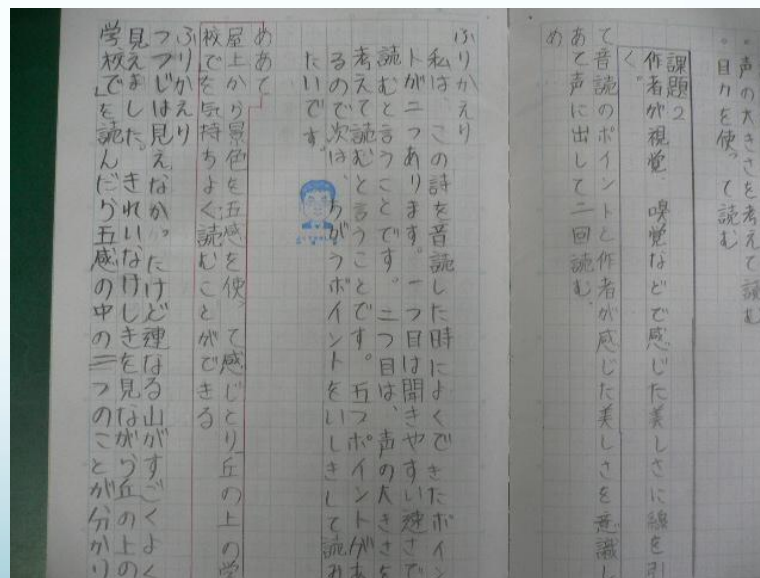 ・声の大きさを考えて読む
・目力を使って読む
課題2
作者が視覚、嗅覚などで感じた美しさに線を引
く。
て音読のポイントと作者が感じた美しさを意識し
あて声に出して二回読む。
め
ふりかえり
私は、この詩を音読した時によくできたポイン
トが二つあります。一つ目は聞きやすい速さで
読むと言うことです。二つ目は、声の大きさを
考えて読むと言うことです。五つポイントがあ
るので次は、ちがうポイントをいしきして読み
たいです。
めあて
屋上から景色を五感を使って感じとり「丘の上の学
校で」を気持ちよく読むことができる
ふりかえり
つつじは見えなかったけど連なる山がすごくよく
見えました。きれいなけしきを見ながら丘の上の
学校で」を読んだら五感の中の三つのことが分かり